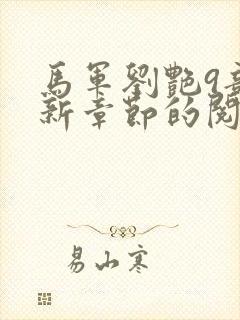 馬軍劉艷9章
新章節的閱
易山寒